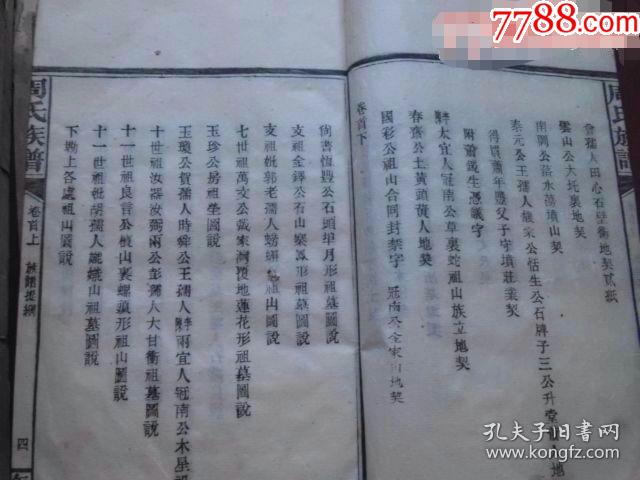 7788.com
周氏族譜
曾孺人田心石壁衝地契貳紙
雲山公大圫裏地契
南關公洛水藻墳山契
泰元公王孺人公恬生公石牌子三公升堂地
得買蕭年豐父子守墳莊業契
附蕭鏡生憑議字
太宜人冠南公草裏蛇祖山族立地契
春齋公土黃頭黃人地契
國彩公祖山合同封禁字 冠南公全家山地契
卷首下
尙書恆公石頭埠月形祖墓圖說
支祖金鐸公石山寨鳳形祖墓圖說
支祖妣郭老孺人螃蟹祖山圖說
七世祖萬支公戴家灣覆地蓮花形祖墓圖說
玉珍公房祖坐圖說
玉瓊公賀孺人時舞公王孺人兩宜人冠南公木星祖
十世祖汝器汝弼兩公彭孺人大甘衝祖墓圖說
十一世祖良言公山裏螺螄形祖山圖說
十一世祖妣胡孺人峨山祖墓圖說
下坳上各處祖山圖說
周氏族譜
卷首上
族譜總綱
四
孔夫子旧书网
www.kongfz.com